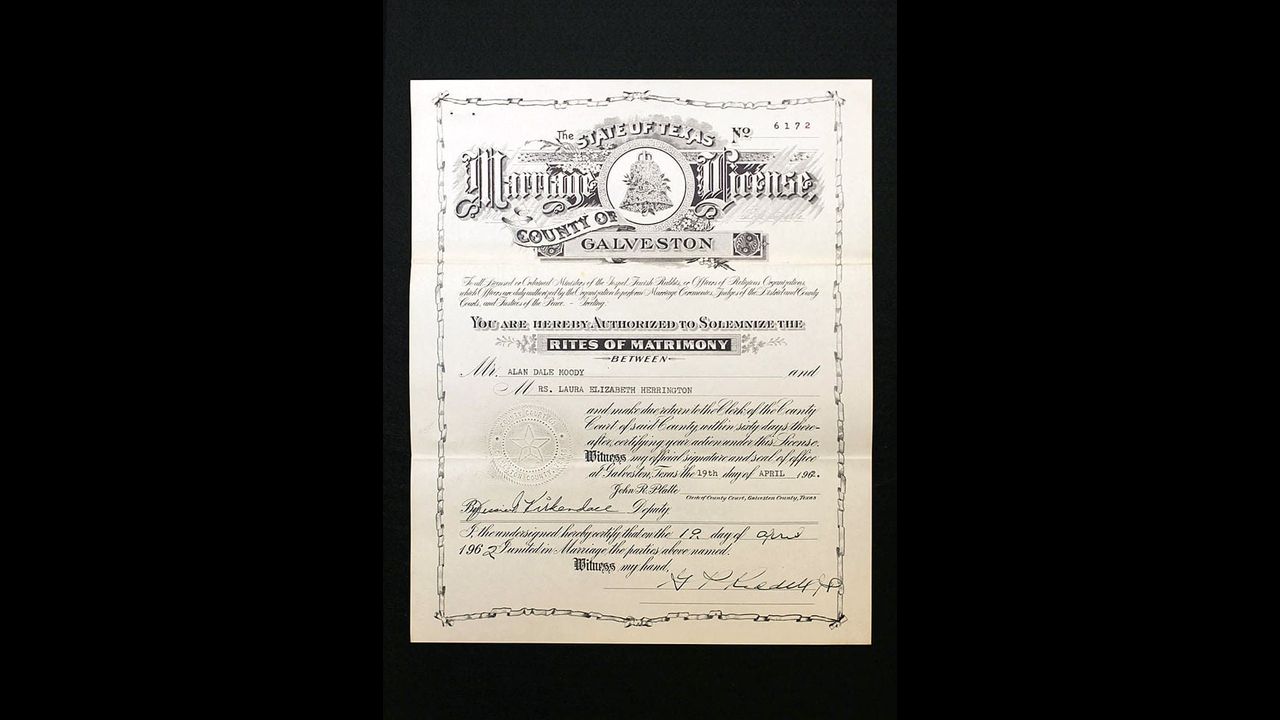 The STATE OF TEXAS
No 6172
Marriage License,
COUNTY OF
GALVESTON
To all Licensed or Ordained Ministers of the Gospel, Jewish Rabbis, or Officers of Religious Organizations,
which Officers are duly authorized by the Organization to perform Marriage Ceremonies, Judges of the District and County
Courts, and Justices of the Peace. - Greeting:
YOU ARE HEREBY AUTHORIZED TO SOLEMNIZE THE
RITES OF MATRIMONY
BETWEEN
Mr. ALAN DALE MOODY and
M RS. LAURA ELIZABETH HERRINGTON
and make due return to the Clerk of the County
Court of said County, within sixty days there-
after, certifying your action under this License.
Witness my official signature and seal of office
at Galveston, Texas the 19th day of APRIL 1962.
John R. Platte
Clerk of County Court, Galveston County, Texas
By Kirkendall Deputy.
I, the undersigned hereby certify that on the 19 day of April
1962 I united in Marriage the parties above named.
Witness my hand,